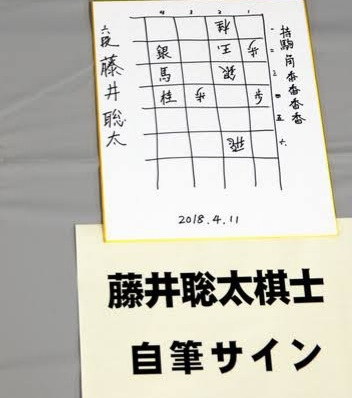 持駒 角香香香香
4 3 2 1
桂 一
銀 玉 歩 二
馬 銀 三
桂 歩 歩 四
五
飛 六
六段 藤井聡太
2018.4.11
藤井聡太棋士
自筆サイン